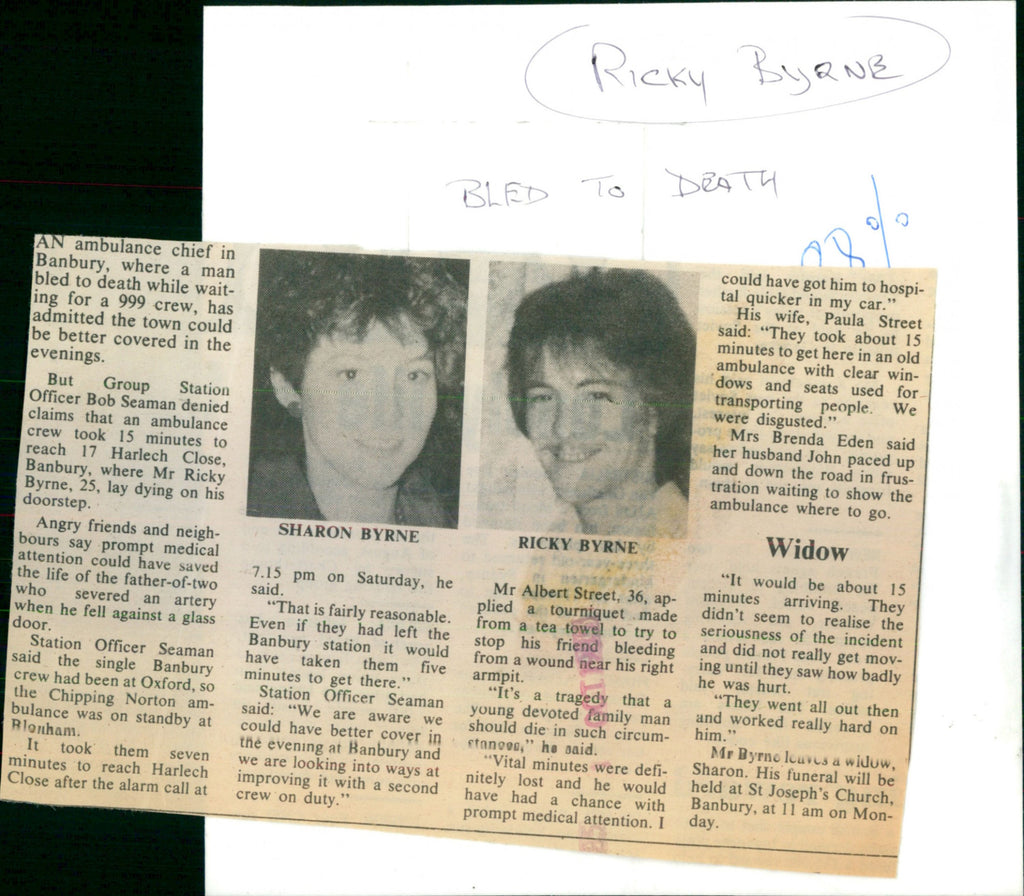 RICKY BYRNE
BLED TO DEATH
98%
AN ambulance chief in
Banbury, where a man
bled to death while wait-
ing for a 999 crew, has
admitted the town could
be better covered in the
evenings.
But Group Station
Officer Bob Seaman denied
claims that an ambulance
crew took 15 minutes to
reach 17 Harlech Close,
Banbury, where Mr Ricky
Byrne, 25, lay dying on his
doorstep.
Angry friends and neigh-
bours say prompt medical
attention could have saved
the life of the father-of-two
who severed an artery
when he fell against a glass
door.
Station Officer Seaman
said the single Banbury
crew had been at Oxford, so
the Chipping Norton am-
bulance was on standby at
It took them seven
minutes to reach Harlech
Close after the alarm call at
SHARON BYRNE
7.15 pm on Saturday, he
said.
"That is fairly reasonable.
Even if they had left the
Banbury station it would
have taken them five
minutes to get there."
Station Officer Seaman
said: "We are aware we
could have better cover in
the evening at Banbury and
we are looking into ways at
improving it with a second
crew on duty."
RICKY BYRNE
Mr Albert Street, 36, ap-
plied a tourniquet made
from a tea towel to try to
stop his friend bleeding
from a wound near his right
armpit.
"It's a tragedy that a
young devoted family man
should die in such circum-
stances," he said.
"Vital minutes were defi-
nitely lost and he would
have had a chance with
prompt medical attention. I
could have got him to hospi-
tal quicker in my car."
His wife, Paula Street
said: "They took about 15
minutes to get here in an old
ambulance with clear win-
dows and seats used for
transporting people. We
were disgusted."
Mrs Brenda Eden said
her husband John paced up
and down the road in frus-
tration waiting to show the
ambulance where to go.
Widow
"It would be about 15
minutes arriving. They
didn't seem to realise the
seriousness of the incident
and did not really get mov-
ing until they saw how badly
he was hurt.
"They went all out then
and worked really hard on
him."
Mr Byrne leaves a widow,
Sharon. His funeral will be
held at St Joseph's Church,
Banbury, at 11 am on Mon-
day.